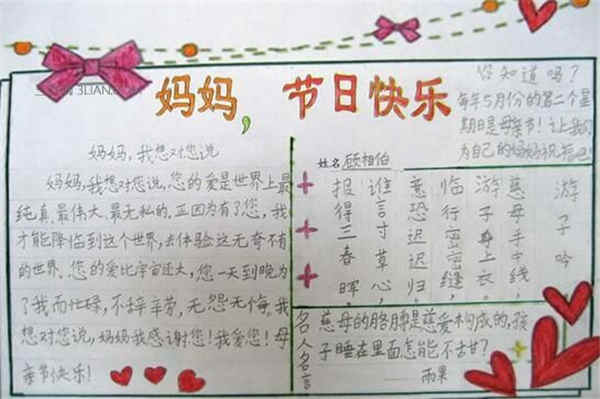 妈妈，节日快乐
你知道吗？
每年5月份的第二个星
期日是母亲节！让我们
为自己的妈妈祝福吧！
妈妈，我想对您说
妈妈，我想对您说，您的爱是世界上最
纯真、最伟大、最无私的，正因为有了您，我
才能降临到这个世界，去体验这无奇不有
的世界。您的爱比宇宙还大，您一天到晚为
了我而忙碌，不辞辛劳，无怨无悔，我
想对您说，妈妈我感谢您！我爱您！母
亲节快乐！
姓名 顾相伯
游子吟
慈母手中线，
游子身上衣。
临行密密缝，
意恐迟迟归。
谁言寸草心，
报得三春晖。
名人名言
慈母的胳膊是慈爱构成的，孩
子睡在里面怎能不甜？
雨果